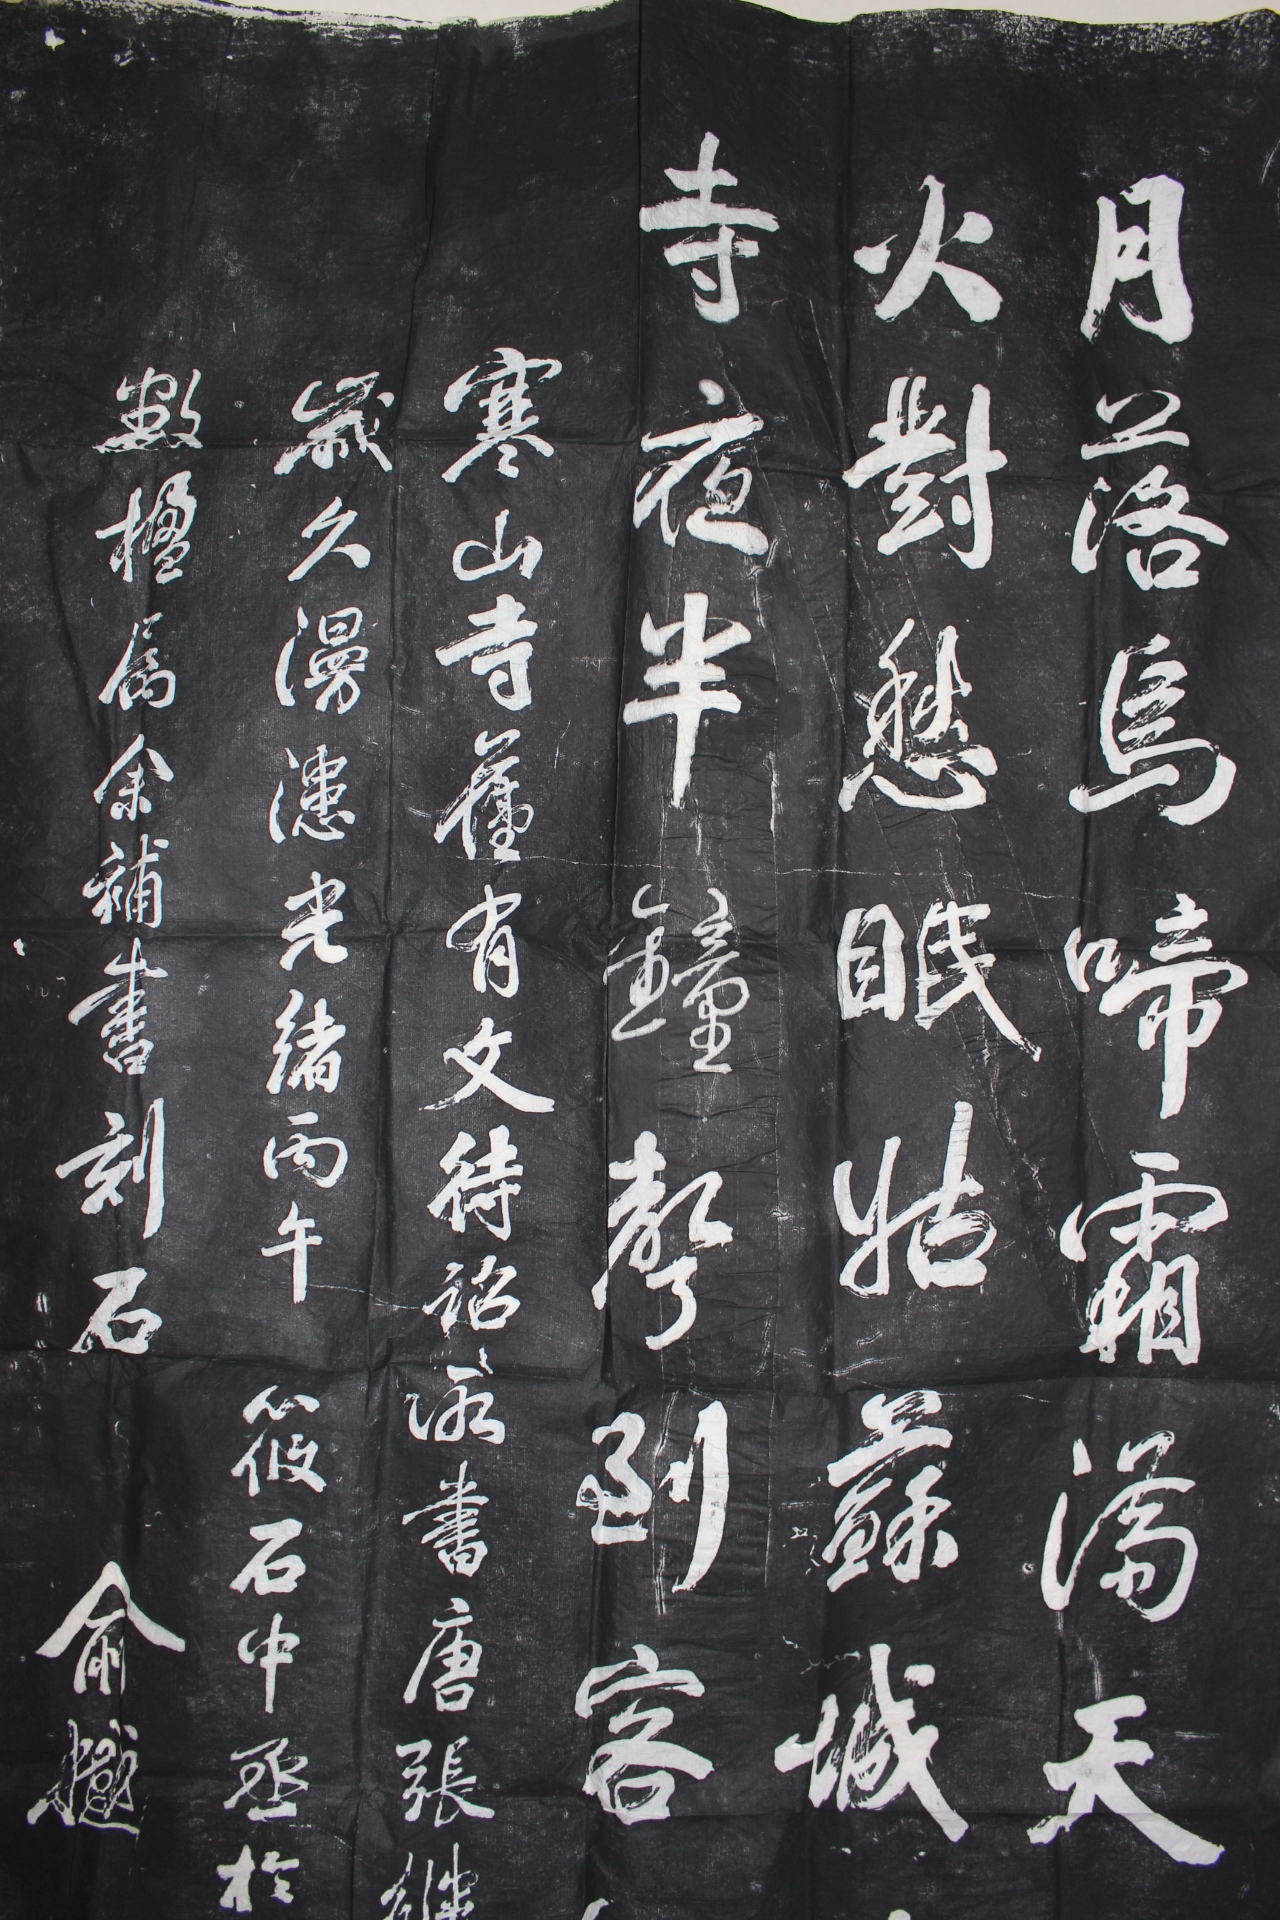 月落烏啼霜滿天
火對愁眠姑蘇城
寺夜半鐘聲到客
寒山寺舊有文待詔所書唐張繼
歲久漫漶光緒丙午筱石中丞於
數楹屬余補書刻石俞樾